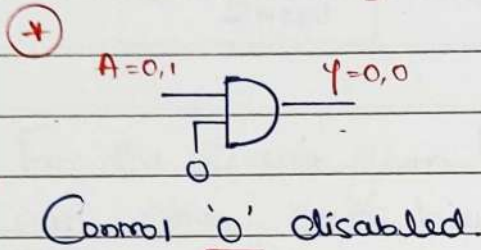 *
A=0,1 Y=0,0
0
Control '0' disabled.